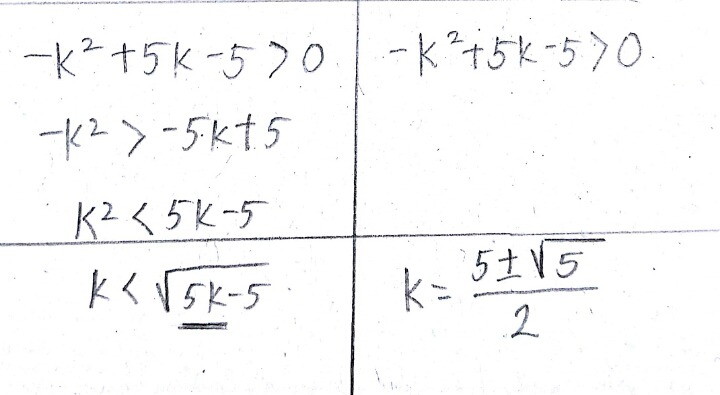 -k²+5k-5>0
-k²>-5k+5
k²<5k-5
k<√5k-5
-k²+5k-5>0
k=5±√5/2